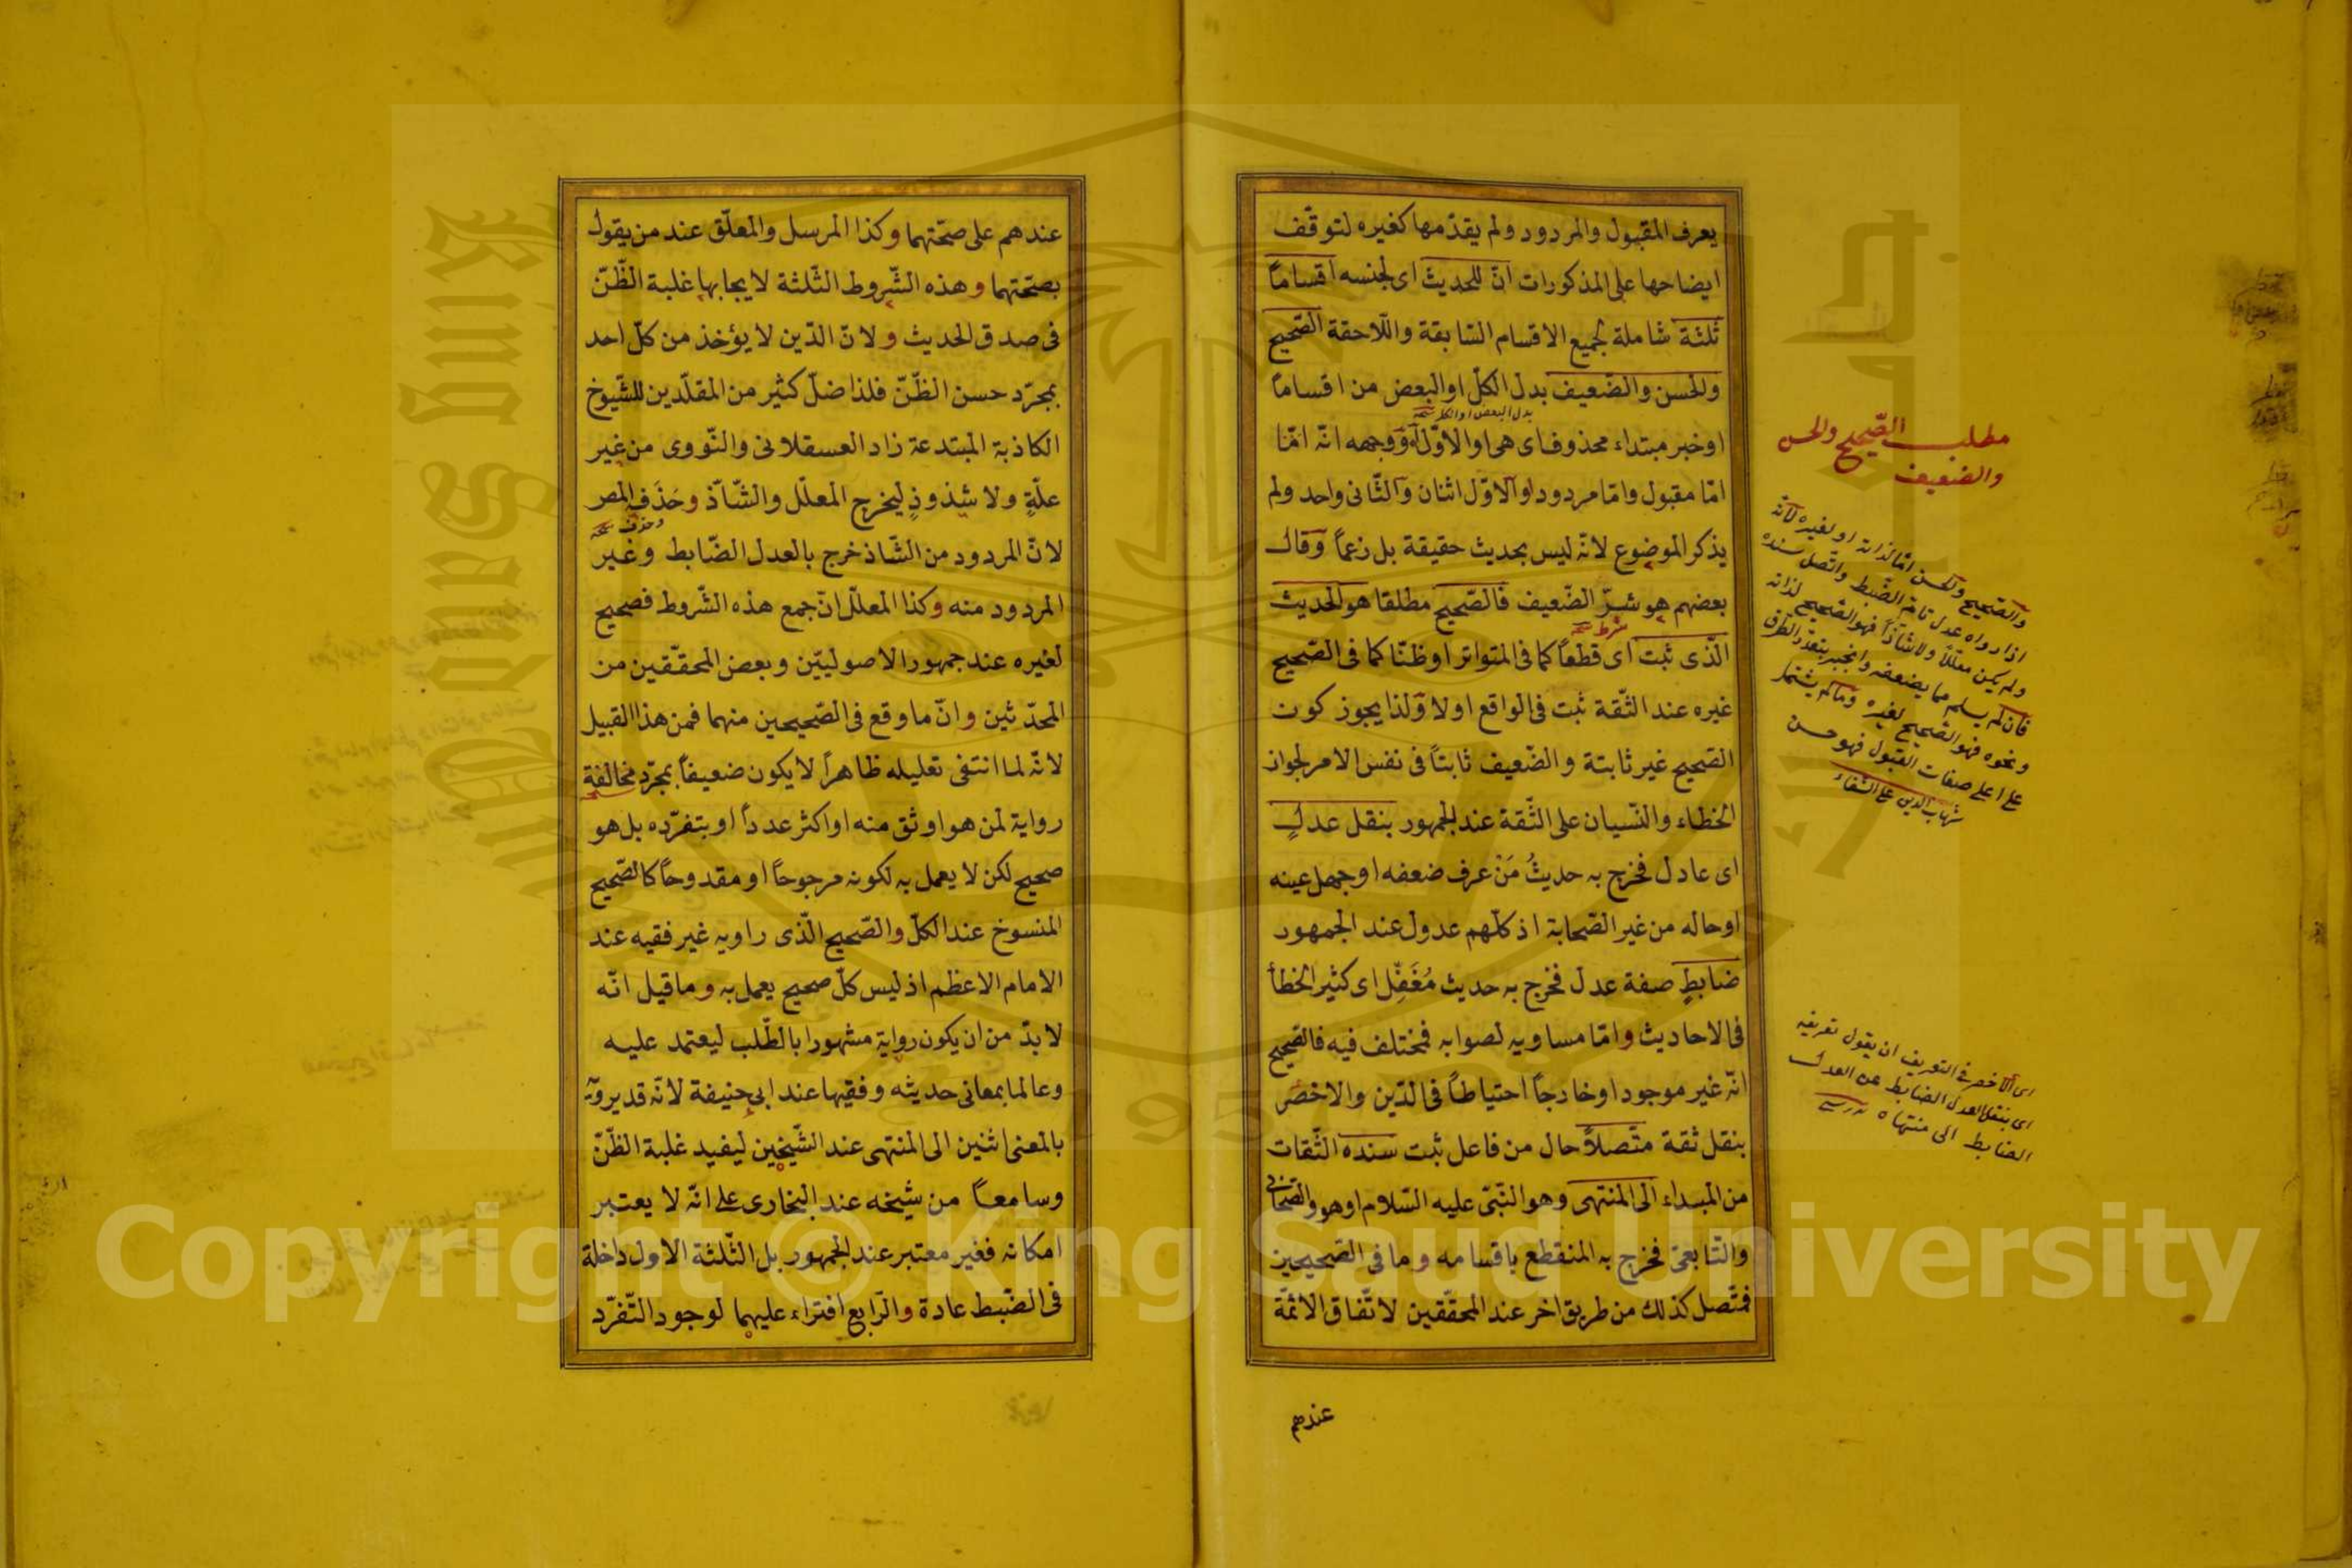 يعرف المقبول والمردود ولم يقدّمها كغيره لتوقّف
ايضاحها على المذكورات انّ للحديث اى لجنسه اقساماً
ثلثة شاملة لجميع الاقسام السّابقة واللّاحقة الصّحيح
والحسن والضّعيف بدل الكلّ او البعض من اقساماً
بدل البعض او الكل
او خبر مبتداء محذوف اى هى او الاوّل آه ووجهه انّه امّا
امّا مقبول وامّا مردود او الاوّل اثنان والثّانى واحد ولم
يذكر الموضوع لانّه ليس بحديث حقيقة بل زعماً وقال
بعضهم هو شرّ الضّعيف فالصّحيح مطلقا هو الحديث
شرط
الّذى ثبت اى قطعاً كما فى المتواتر او ظنّا كما فى الصّحيح
غيره عند الثّقة ثبت فى الواقع اولا ولذا يجوز كون
الصّحيح غير ثابتة والضّعيف ثابتاً فى نفس الامر لجواز
الخطاء والنّسيان على الثّقة عند الجمهور بنقل عدلٍ
اى عادل فخرج به حديثُ مَنْ عرف ضعفه او جهل عينه
او حاله من غير الصّحابة اذ كلّهم عدول عند الجمهور
ضابطٍ صفة عدل فخرج به حديث مُغَفّل اى كثير الخطأ
فى الاحاديث وامّا مساويه لصوابه فمختلف فيه فالصّحيح
انّه غير موجود او خارجاً احتياطاً فى الدّين والاخصر
بنقل ثقة متّصلاً حال من فاعل ثبت سنده الثّقات
من المبداء الى المنتهى وهو النّبىّ عليه السّلام او هو والصّحابىّ
والتّابعىّ فخرج به المنقطع باقسامه وما فى الصّحيحين
فمتّصل كذلك من طريق اخر عند المحقّقين لاتّفاق الائمّة
عندهم
مطلب الصّحيح والحسن
والضعيف
والصّحيح والحسن امّا لذاته او لغيره لانّه
اذا رواه عدل تامّ الضّبط واتّصل سنده
ولم يكن معلّلاً ولا شاذّاً فهو الصّحيح لذاته
فان لم يسلم مما يضعفه وانجبر بتعدّد الطّرق
ونحوه فهو الصّحيح لغيره وما لم يشتمل
على اعلى صفات القبول فهو حسن
شهاب الدين على الشفاء
اى الاخصر فى التعريف ان يقول تعريفه
اى بنقل العدل الضابط عن العدل
الضابط الى منتهاه
عندهم على صحّتهما وكذا المرسل والمعلّق عند من يقول
بصحّتهما وهذه الشّروط الثّلثة لايجابها غلبة الظّنّ
فى صدق الحديث ولانّ الدّين لا يؤخذ من كلّ احد
بمجرّد حسن الظّنّ فلذا ضلّ كثير من المقلّدين للشّيوخ
الكاذبة المبتدعة زاد العسقلانى والنّووى من غير
علّةٍ ولا شذوذٍ ليخرج المعلّل والشّاذّ وحَذَفَ المص
وحذف
لانّ المردود من الشّاذ خرج بالعدل الضّابط وغير
المردود منه وكذا المعلّل انّ جمع هذه الشّروط فصحيح
لغيره عند جمهور الاصوليّين وبعض المحقّقين من
المحدّثين وانّ ما وقع فى الصّحيحين منهما فمن هذا القبيل
لانّه لما انتفى تعليله ظاهراً لا يكون ضعيفاً بمجرّد مخالفة
رواية لمن هو اوثق منه او اكثر عدداً او بتفرّده بل هو
صحيح لكن لا يعمل به لكونه مرجوحاً او مقدوحاً كالصّحيح
المنسوخ عند الكلّ والصّحيح الّذى راويه غير فقيه عند
الامام الاعظم اذ ليس كلّ صحيح يعمل به وما قيل انّه
لا بدّ من ان يكون رواية مشهورا بالطّلب ليعتمد عليه
وعالما بمعانى حديثه وفقيها عند ابى حنيفة لانّه قد يرويه
بالمعنى اثنين الى المنتهى عند الشّيخين ليفيد غلبة الظّنّ
وسامعاً من شيخه عند البخارى على انّه لا يعتبر
امكانه فغير معتبر عند الجمهور بل الثّلثة الاول داخلة
فى الضّبط عادة والرّابع افتراء عليهما لوجود التّفرّد
King Saud University
1957
Copyright © King Saud University